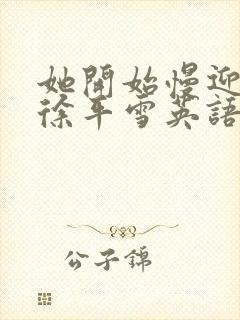 她開始慢迎
徐平雪英語
公子錦